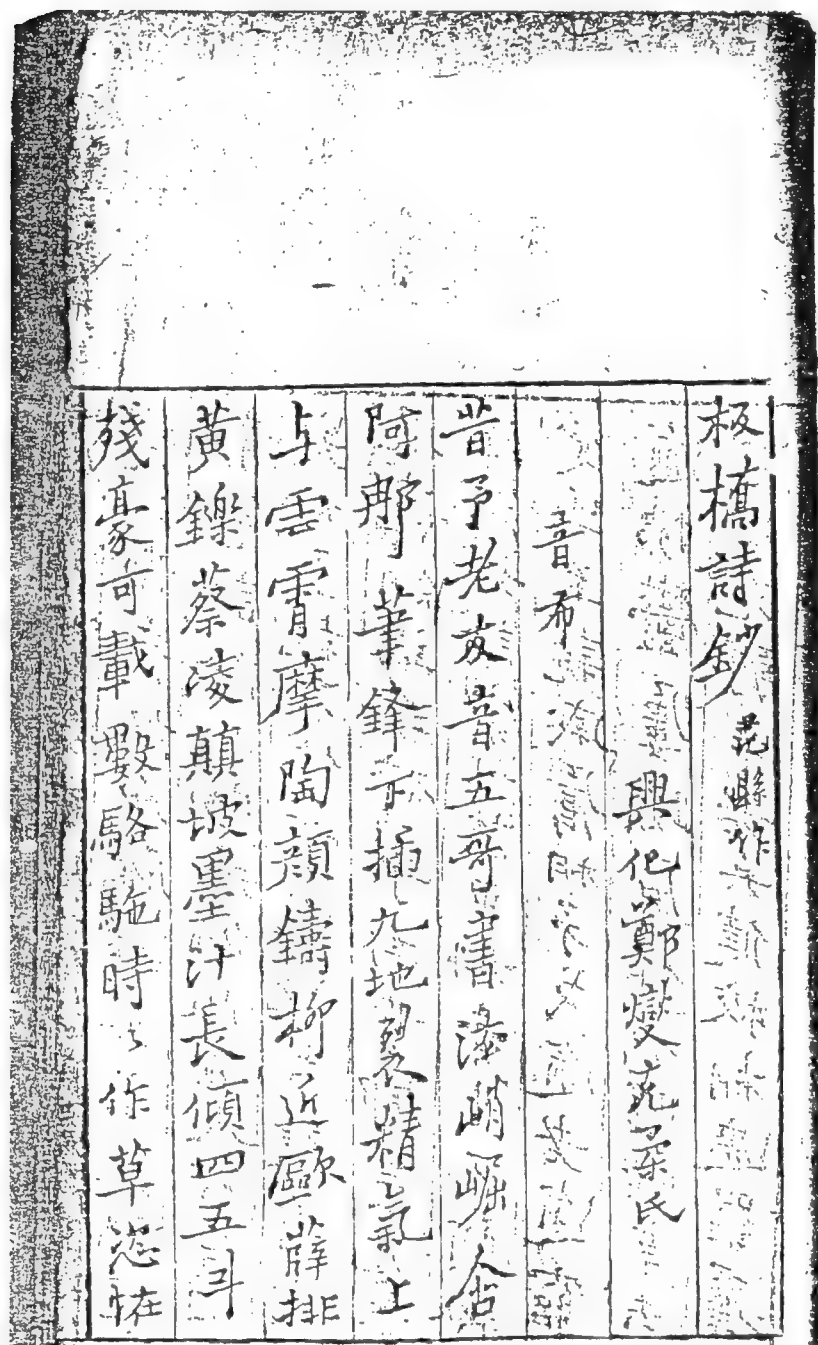 板橋詩鈔 范縣作
興化鄭燮克柔氏
音布
昔予老友音五哥書法峭崛含
阿那筆鋒下插九地裂精氣上
与雲霄摩陶顏鑄柳近歐薛排
黃鑠蔡凌顛坡墨汁長傾四五斗
殘豪可載數駱駝時〻作草恣怪